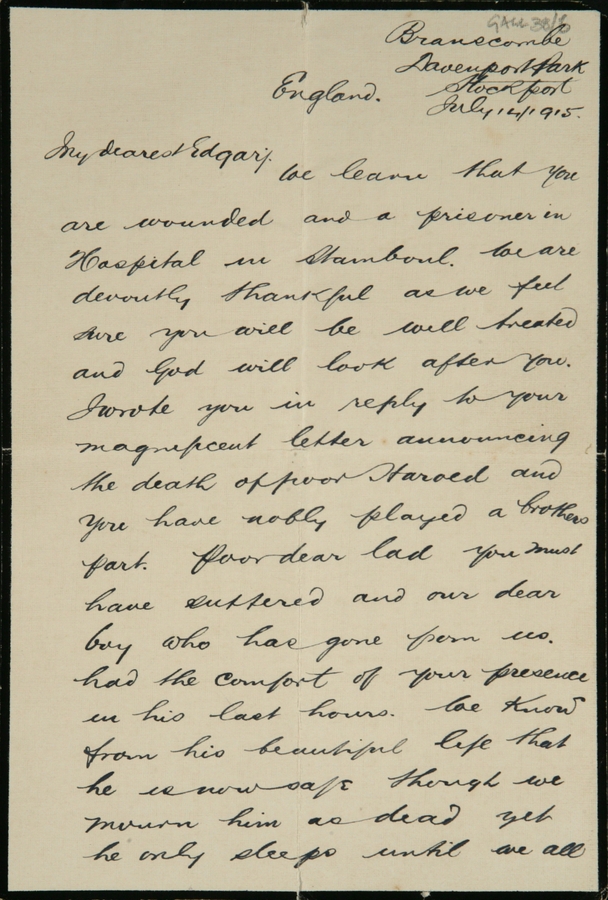 GALL 38/3
Branscombe
Davenport Park
Stockport
England.
July 14/1915.
My dearest Edgar,
We learn that you
are wounded and a prisoner in
Hospital in Stamboul. We are
devoutly thankful as we feel
sure you will be well treated
and God will look after you.
I wrote you in reply to your
magnificent letter announcing
the death of poor Harold and
you have nobly played a brothers
part. Poor dear lad you must
have suffered and our dear
boy who has gone from us.
had the comfort of your presence
in his last hours. We know
from his beautiful life that
he is now safe though we
mourn him as dead yet
he only sleeps until we all